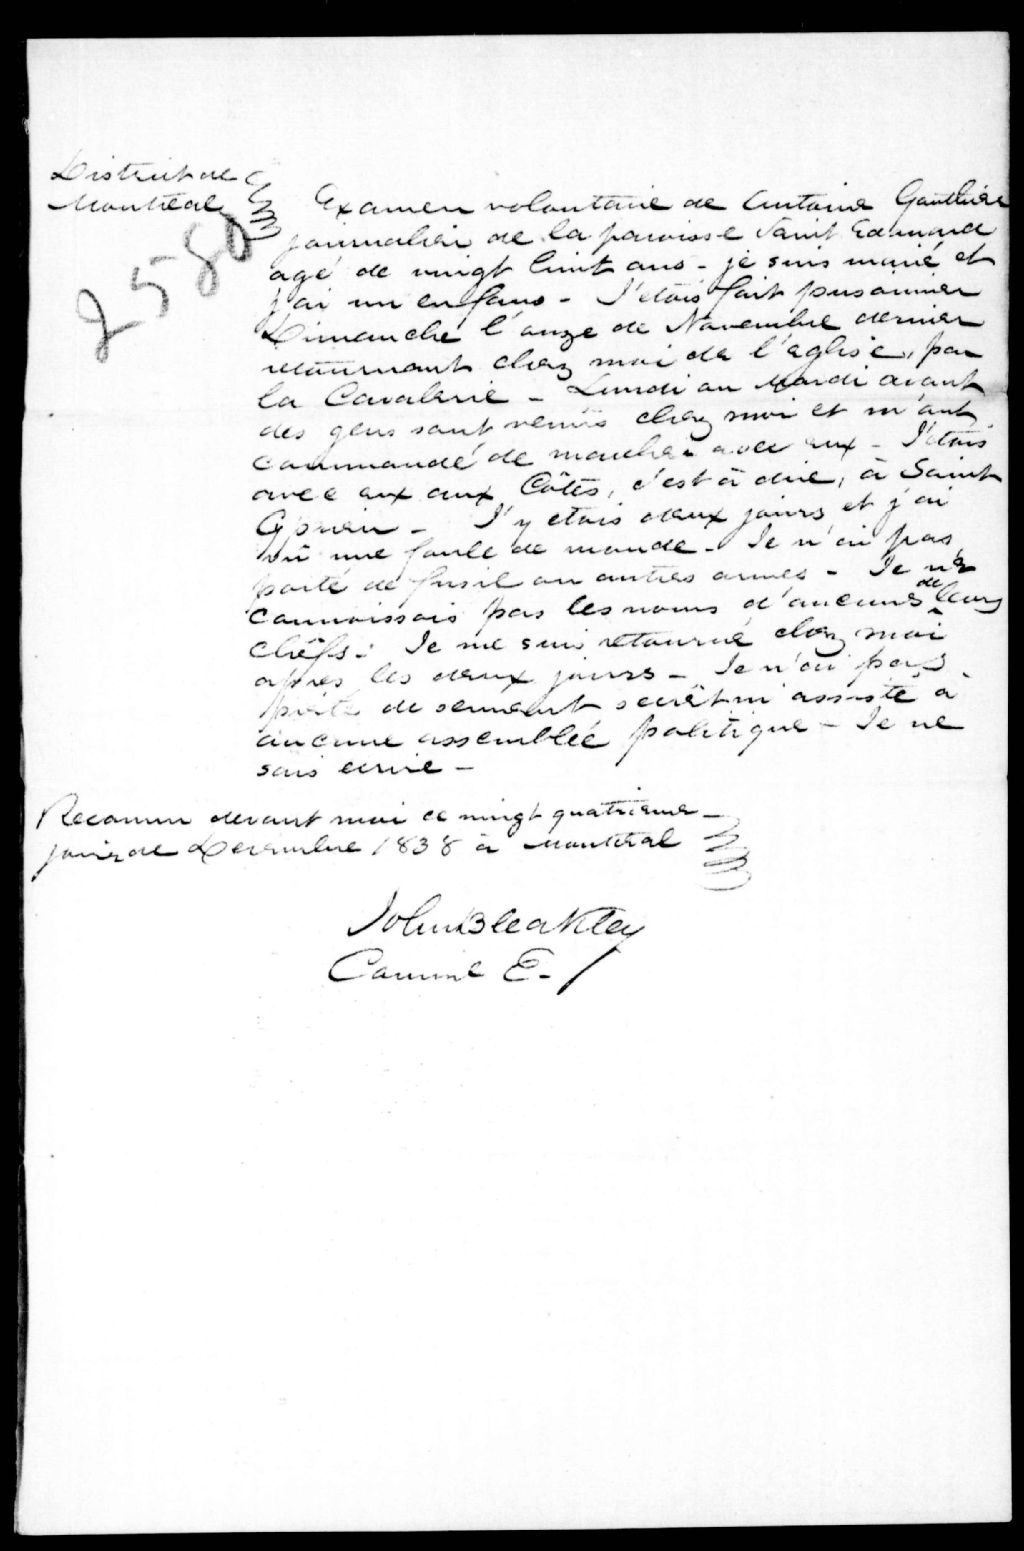 District de
Montréal
2580
Examen volontaire de Antoine Gauthier
journalier de la paroisse Saint Edouard
agé de vingt huit ans - je suis marié et
j'ai un enfans - J'etois fait prisonnier
Dimanche l'onze de Novembre dernier
retournant chez moi de l'eglise, par
la Cavalerie - Lundi ou Mardi avant
des gens sont venus chez moi et m'ont
commandé de marcher avec eux - J'etois
avec eux aux Côtes, c'est à dire, à Saint
Cyprien - J'y etois deux jours et j'ai
vû une foule de monde - Je n'ai pas
porté de fusil ou autres armes - Je ne
connoissois pas les noms d'aucuns de leurs
chêfs. Je me suis retourné chez moi
après les deux jours - Je n'ai pas
prêté de serment secrêt ni assisté à
aucune assemblée politique - Je ne
sais ecrire -
Reconnu devant moi ce vingt quatrieme
jour de Decembre 1838 à Montréal
John Bleakley
Comme E.